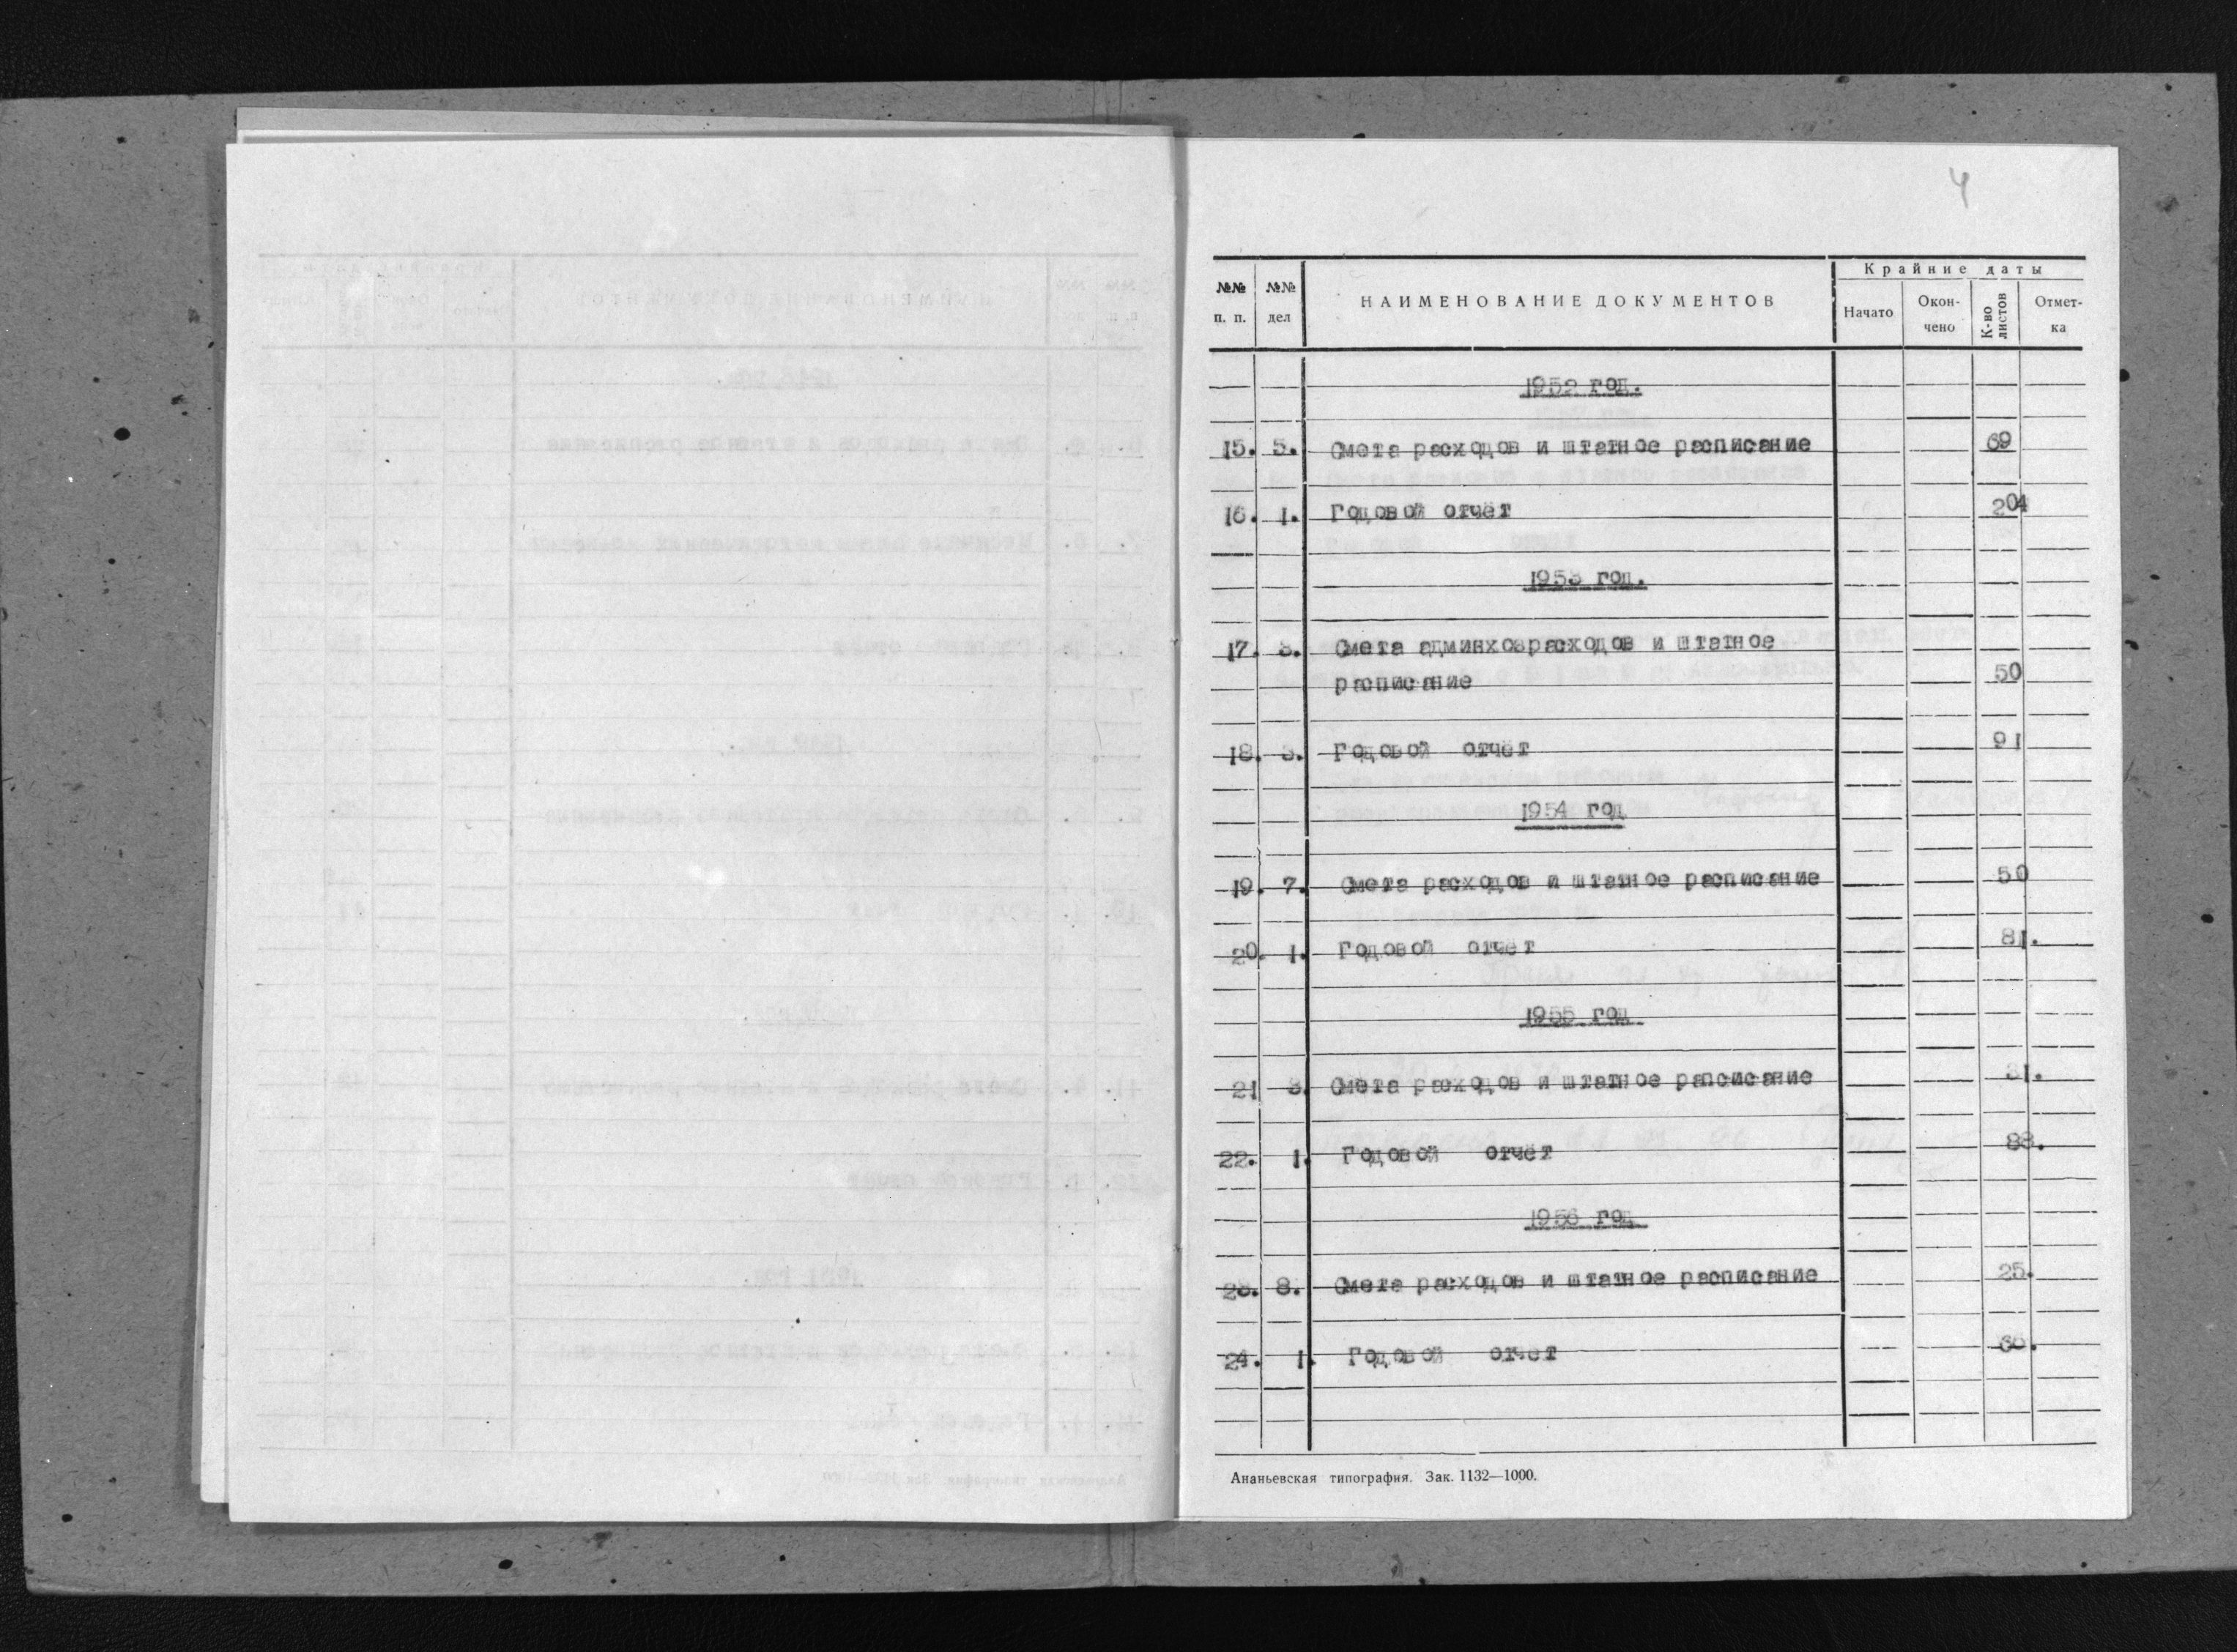 4
№№ п. п.
№№ дел
НАИМЕНОВАНИЕ ДОКУМЕНТОВ
Крайние даты
Начато
Окон-
чено
К-во листов
Отмет-
ка
1952 год.
15. 5. Смета расходов и штатное расписание 69
16. 1. Годовой отчёт 204
1953 год.
17. 3. Смета админхозрасходов и штатное
расписание 50
18. 3. Годовой отчёт 91
1954 год
19. 7. Смета расходов и штатное расписание 50
20. 1. Годовой отчет 81.
1955 год
21 3. Смета расходов и штатное рапсисание 31.
22. 1. Годовой отчёт 83.
1956 год
23. 8. Смета расходов и штатное расписание 25.
24. 1. Годовой отчет
Ананьевская типография. Зак. 1132—1000.